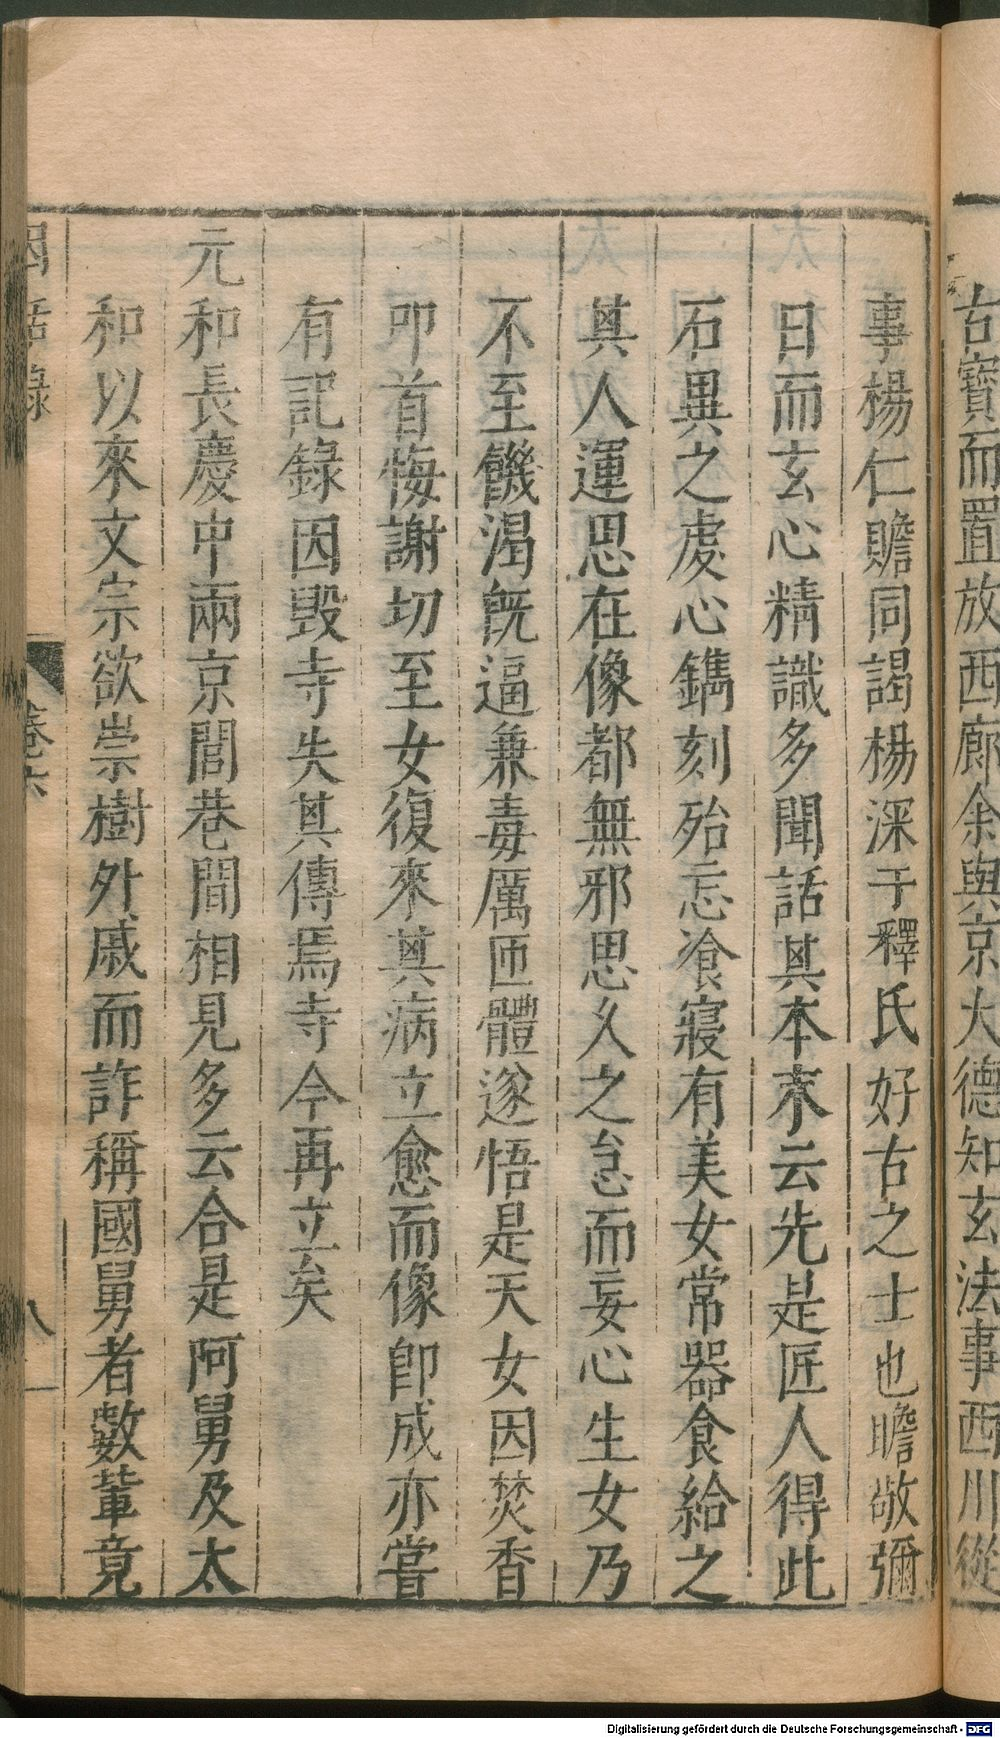 古寶而置放西廊余與京大德知玄法事西川從
事楊仁贍同謁楊深于釋氏好古之士也瞻敬彌
日而玄心精識多聞話其本末云先是匠人得此
石異之處心鐫刻殆忘飡寢有美女常器食給之
其人運思在像都無邪思久之怠而妄心生女乃
不至饑渴旣逼兼毒厲匝體遂悟是天女因焚香
叩首悔謝切至女復來其病立愈而像卽成亦嘗
有記錄因毀寺失其傳焉寺今再立矣
元和長慶中兩京閭巷間相見多云合是阿舅及太
和以來文宗欲崇樹外戚而詐稱國舅者數輩竟
因話錄
卷六
八
Digitalisierung gefördert durch die Deutsche Forschungsgemeinschaft - DFG